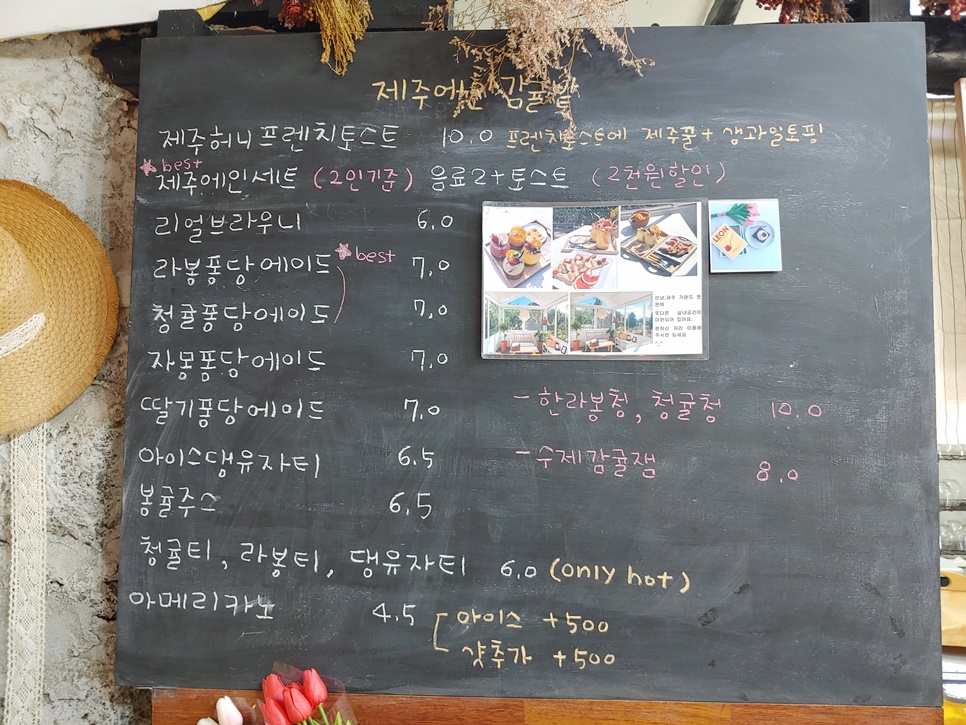 제주에인 감귤밭
제주허니프렌치토스트 10.0 프렌치토스트에 제주꿀+ 생과일토핑
best
제주에인세트 (2인기준) 음료2+토스트 (2천원할인)
리얼브라우니 6.0
라봉퐁당에이드 best 7.0
청귤퐁당에이드 7.0
자몽퐁당에이드 7.0
딸기퐁당에이드 7.0
아이스댕유자티 6.5
봉귤주스 6.5
청귤티, 라봉티, 댕유자티 6.0 (only hot)
아메리카노 4.5
아이스 +500
샷추가 +500
LEON
- 한라봉청, 청귤청 10.0
- 수제감귤잼 8.0